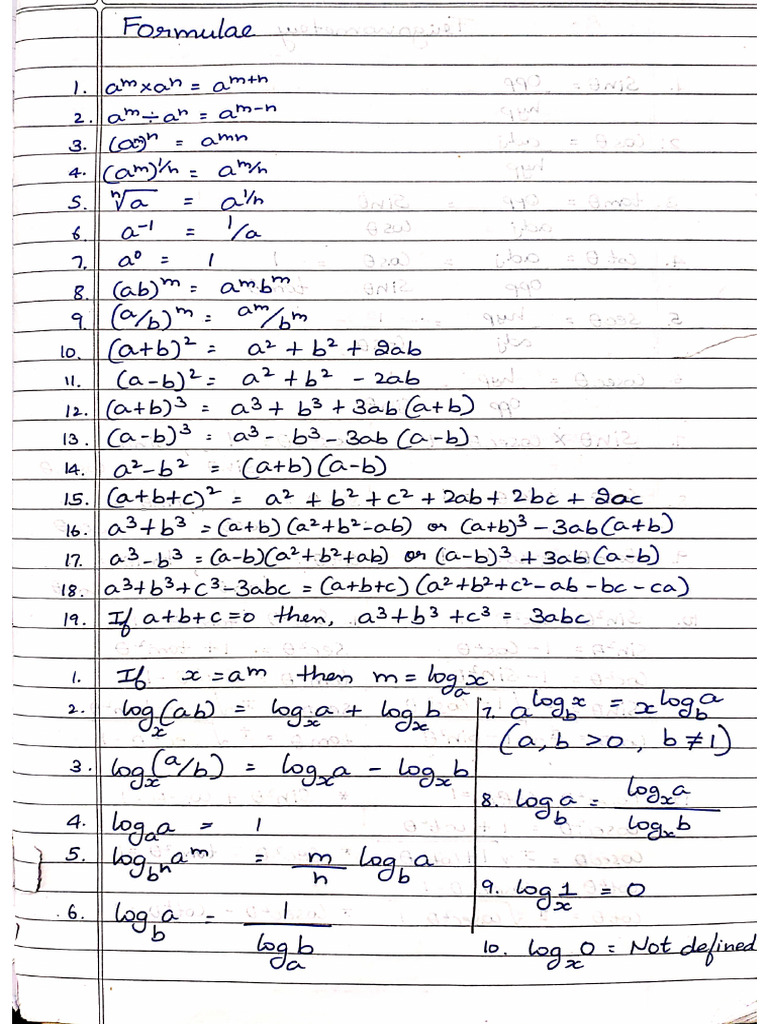 Formulae
1. aᵐ×aⁿ = aᵐ⁺ⁿ
2. aᵐ÷aⁿ = aᵐ⁻ⁿ
3. (aᵐ)ⁿ = aᵐⁿ
4. (aᵐ)¹/ⁿ = aᵐ/ⁿ
5. ⁿ√a = a¹/ⁿ
6. a⁻¹ = 1/a
7. a⁰ = 1
8. (ab)ᵐ = aᵐ.bᵐ
9. (a/b)ᵐ = aᵐ/bᵐ
10. (a+b)² = a² + b² + 2ab
11. (a-b)² = a² + b² - 2ab
12. (a+b)³ = a³ + b³ + 3ab(a+b)
13. (a-b)³ = a³ - b³ - 3ab(a-b)
14. a²-b² = (a+b)(a-b)
15. (a+b+c)² = a² + b² + c² + 2ab + 2bc + 2ac
16. a³+b³ = (a+b)(a²+b²-ab) or (a+b)³ - 3ab(a+b)
17. a³-b³ = (a-b)(a²+b²+ab) or (a-b)³ + 3ab(a-b)
18. a³+b³+c³-3abc = (a+b+c)(a²+b²+c²-ab-bc-ca)
19. If a+b+c=0 then, a³+b³+c³ = 3abc
1. If x = aᵐ then m = logₐx
2. logₓ(ab) = logₓa + logₓb
3. logₓ(a/b) = logₓa - logₓb
4. logₐa = 1
5. log_bⁿ aᵐ = m/n log_b a
6. log_b a = 1/logₐb
7. a^(log_b x) = x^(log_b a)
(a,b >0, b≠1)
8. log_b a = logₓa/logₓb
9. logₓ1 = 0
10. logₓ0 = Not defined